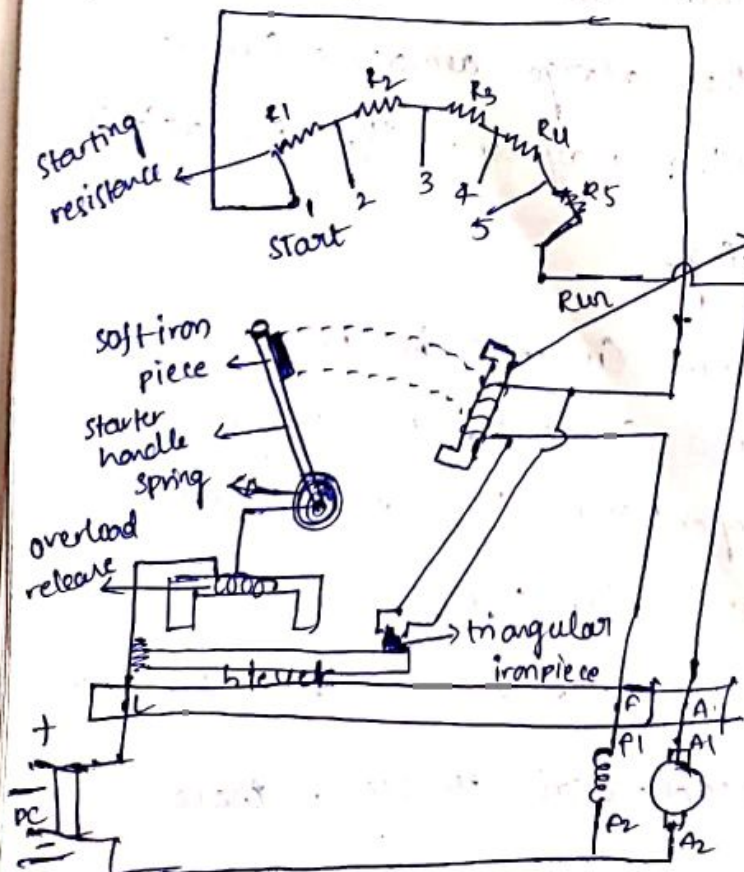 R1
R2
R3
R4
R5
Starting
resistance
1
2
3
4
5
Start
Run
soft-iron
piece
starter
handle
spring
overload
release
triangular
iron piece
L
F
A
+
F1
A1
DC
F2
A2
-